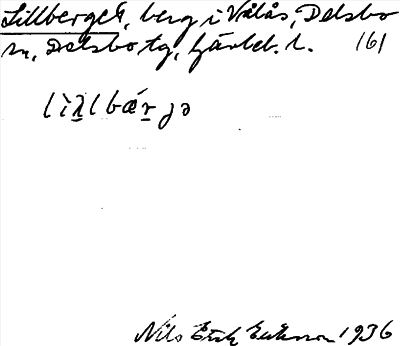 Lillberget, berg i Välås, Delsbo
sn, Delsbo tg, Gävleb. l. 161
lìλ̱lbǽr̠jə
Nils Erik Eriksson 1936